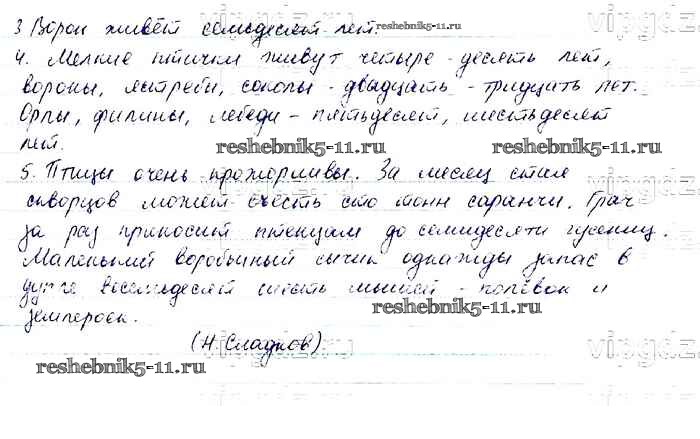 3 Ворон живёт семьдесят лет.
reshebnik5-11.ru
4. Мелкие птички живут четыре - десять лет,
вороны, ястребы, соколы - двадцать - тридцать лет.
Орлы, филины, лебеди - пятьдесят, шестьдесят
лет.
reshebnik5-11.ru reshebnik5-11.ru
5. Птицы очень прожорливы. За месяц стая
скворцов может съесть сто тонн саранчи. Грач
за раз приносит птенцам до семидесяти гусениц.
Маленький воробьиный сычик однажды запас в
дупле восемьдесят шесть мышей - полёвок и
землероек.
reshebnik5-11.ru
(Н. Сладков)
reshebnik5-11.ru